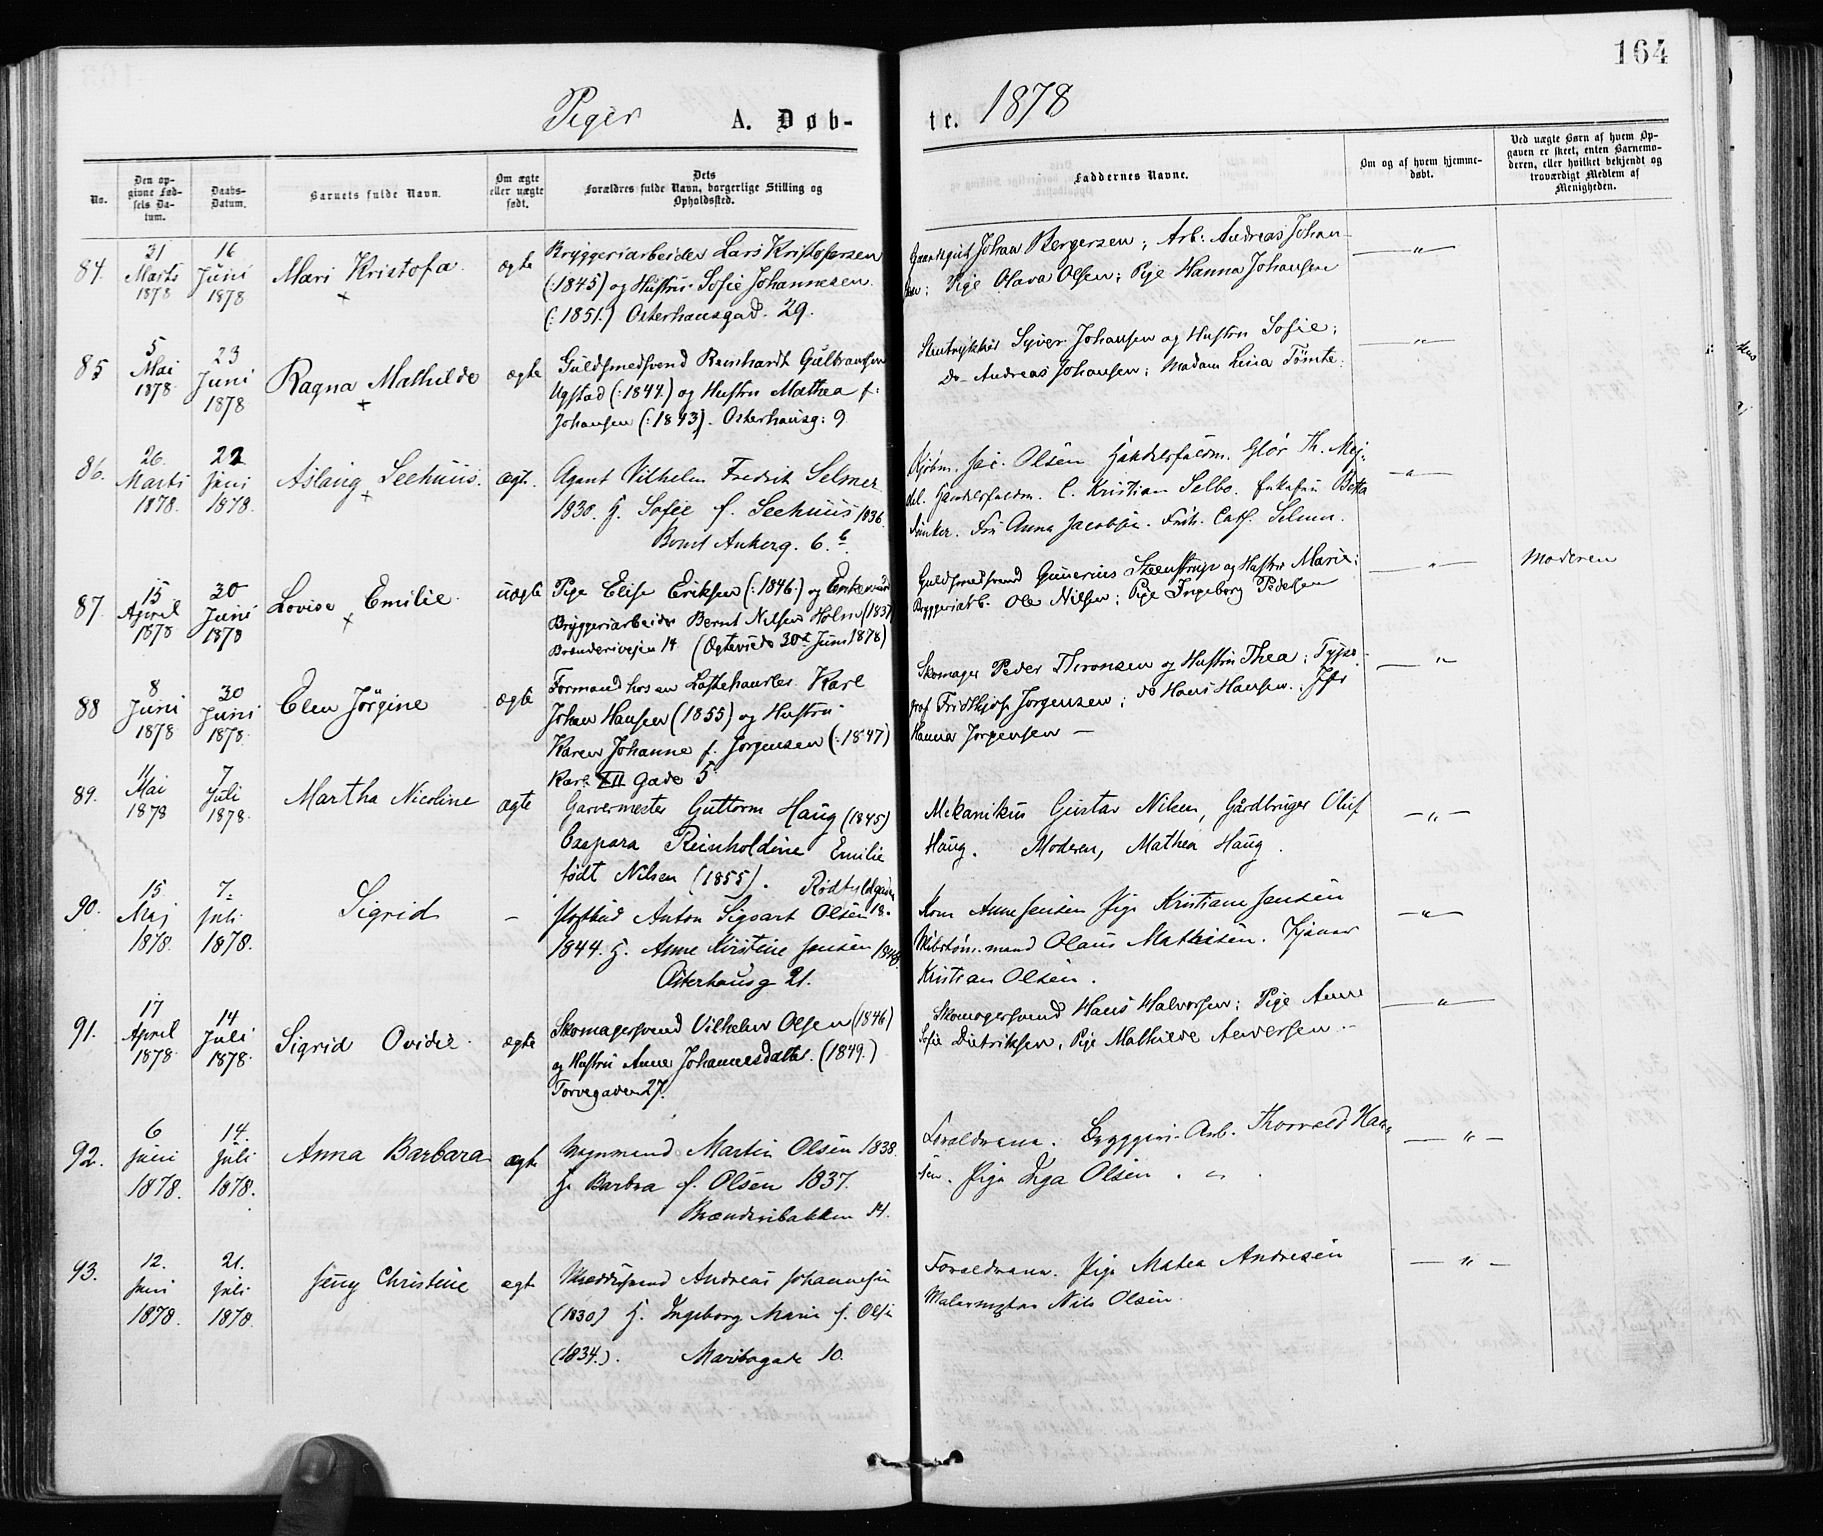 164
Piger A. Døb-
te. 1878
No.
Den op-
givne Fød-
sels Da-
tum.
Daabs-
Datum.
Barnets fulde Navn.
Om ægte
eller uægte
født.
Dets
Forældres fulde Navn, borgerlige Stilling og
Opholdssted.
Faddernes Navne.
Om og af hvem hjemme-
døbt.
Ved uægte Børn af hvem Op-
gaven er skeet, enten Barnemo-
deren, eller hvilket bekjendt og
troværdigt Medlem af
Menigheden.
84.
31
Marts
1878
16
Juni
1878
Mari Kristofa
+
ægte
Bryggeriarbeider Lars Kristofersen
(:1845) og Hustru Sofie Johannesen
(:1851.) Osterhausgad. 29.
Johan Bergersen; Arb: Andreas Johan-
sen; Pige Olava Olsen; Pige Hanna Johansen
— " —
85
5
Mai
1878
23
Juni
1878
Ragna Mathilde
+
ægte
Guldsmedsvend Reinhardt Gulbransen
Ugstad (:1844.) og Hustru Mathea f:
Johansen (:1843). Osterhausg: 9
Stentrykker Syver Johansen og Hustru Sofie;
Do Andreas Johansen; Madam Lina Tømte.
— " —
86.
26.
Marts
1878.
22
Juni
1878.
Aslaug Seehuus.
+
ægt.
Agent Vilhelm Fredrik Selmer
1830. H. Sofie f. Seehuus 1836.
Bernt Ankerg. 6.b
Kjøbm. Jac. Olsen Handelsfuldm. Glør Th. Mej-
del. Handelsfuldm. C. Kristian Selbo. Enkefru Betta
Funker. Frk Anna Jacobsen. Frk. Cath. Selmer.
— " —
87.
15
April
1878
30
Juni
1878
Lovise Emilie.
+
uægte
Pige Elise Eriksen (:1846:) og Enkemand
Bryggeriarbeider Bernt Nilsen Holm (1837)
Brænderivejen 14 (Ægteviede 30te Juni 1878)
Guldsmedsvend Gunerius Steenstrup og Hustru Marie;
Bryggeriarb. Ole Nilsen; Pige Ingeborg Pedersen
— " —
Moderen
88
8
Juni
1878
30
Juni
1878.
Elen Jörgine
ægte
Formand hos en Lostehandler Karl
Johan Hansen (1855) og Hustru
Karen Johanne f. Jørgensen (:1847)
Karl XII Gade 5
Skomager Peder Thronsen og Hustru Thea; Typo-
graf Fridthjof Jørgensen; do Hans Hansen. Jfr
Hanna Jørgensen —
— " —
89.
11
Mai
1878
7
Juli
1878.
Martha Nicoline
ægte
Garvermester Guttorm Haug (1845)
Caspara Reinholdine Emilie
født Nilsen (1855). Rødfyldgaden
18.
Mekanikus Gustav Nilsen, Gårdbruger Oluf
Haug. Moderen, Mathea Haug.
— " —
90.
15.
Maj
1878.
7.
Juli
1878.
Sigrid
–
Postbud Anton Sigvart Olsen
1844. H. Anne Kirstine Jensen 1848.
Osterhausg 21.
Kone Anne Jensen Pige Kristiane Jensen
mand Olaus Mathisen. Tjener
Kristian Olsen.
— " —
91.
17
April
1878
14
Juli
1878.
Sigrid Ovider.
ægte
Skomagersvend Vilhelm Olsen (1846)
og Hustru Anne Johannesdatter. (1849.)
Torvegaden 27.
Skomagersvend Hans Halvorsen; Pige Anne
Sofie Diedriksen, Pige Mathilde Andersen. –
— " —
92.
6
Juni
1878.
14.
Juli
1878.
Anna Barbara
ægte
Vognmand Martin Olsen 1838.
H. Barbra f. Olsen 1837.
Brænderibakken 14.
Foræeldrene. Bryggeri-Arb. Thorvald Han-
sen. Pige Inga Olsen. "
— " —
93.
12.
Juni
1878.
21.
Juli
1878.
Jenny Christine
ægt
Skræddersvend Andreas Johannesen
(1830) H. Ingeborg Marie f. Olsen
(1834.). Maribogade 10.
Forældrene. Pige Matea Andresen
Malermester Nils Olsen.
— " —